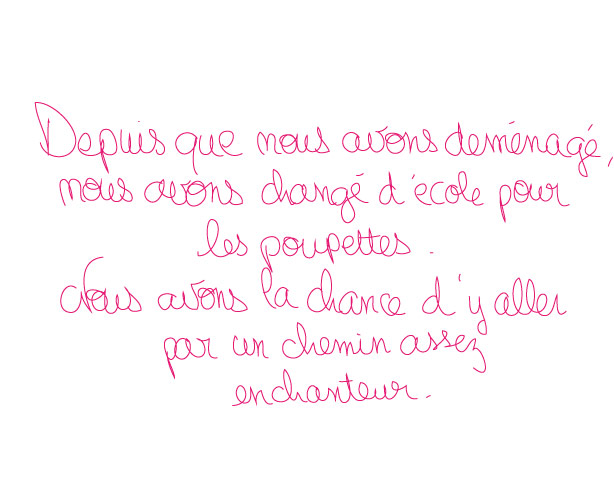 Depuis que nous avons deménagé,
nous avons changé d'école pour
les poupettes.
Nous avons la chance d'y aller
par un chemin assez
enchanteur.